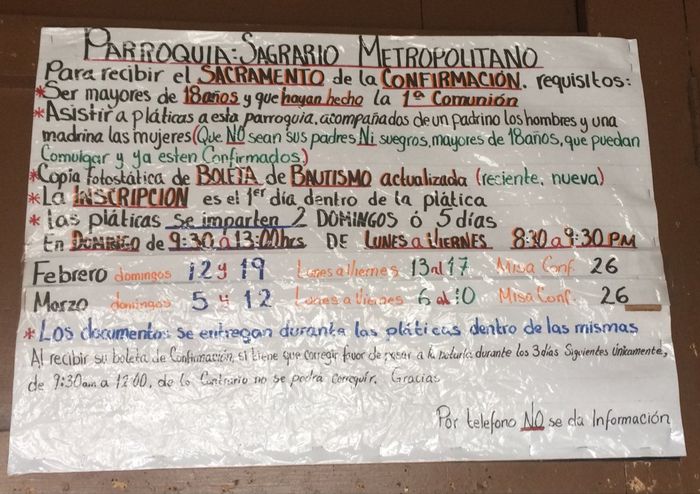 PARROQUIA: SAGRARIO METROPOLITANO
Para recibir el SACRAMENTO de la CONFIRMACIÓN. requisitos:
*Ser mayores de 18 años y que hayan hecho la 1ª Comunión
*Asistir a pláticas a esta parroquia, acompañados de un padrino los hombres y una
madrina las mujeres (Que NO sean sus padres Ni suegros, mayores de 18 años, que puedan
Comulgar y ya esten Confirmados.)
*Copia fotostática de BOLETA de BAUTISMO actualizada (reciente, nueva)
*La INSCRIPCION es el 1er día dentro de la plática
*las pláticas se imparten 2 DOMINGOS ó 5 días
En DOMINGO de 9:30 a 13:00hrs DE LUNES a VIERNES 8:30 a 9:30 PM
Febrero domingos 12 y 19 Lunes a Viernes 13 al 17 Misa Conf. 26
Marzo domingos 5 y 12 Lunes a Viernes 6 al 10 Misa Conf. 26
*Los documentos se entregan durante las pláticas dentro de las mismas
Al recibir su boleta de Confirmación, si tiene que corregir favor de pasar a la Notaría durante los 3 días Siguientes únicamente,
de 9:30am a 12:00, de lo Contrario no se podra corregir. Gracias
Por telefono NO se da Información